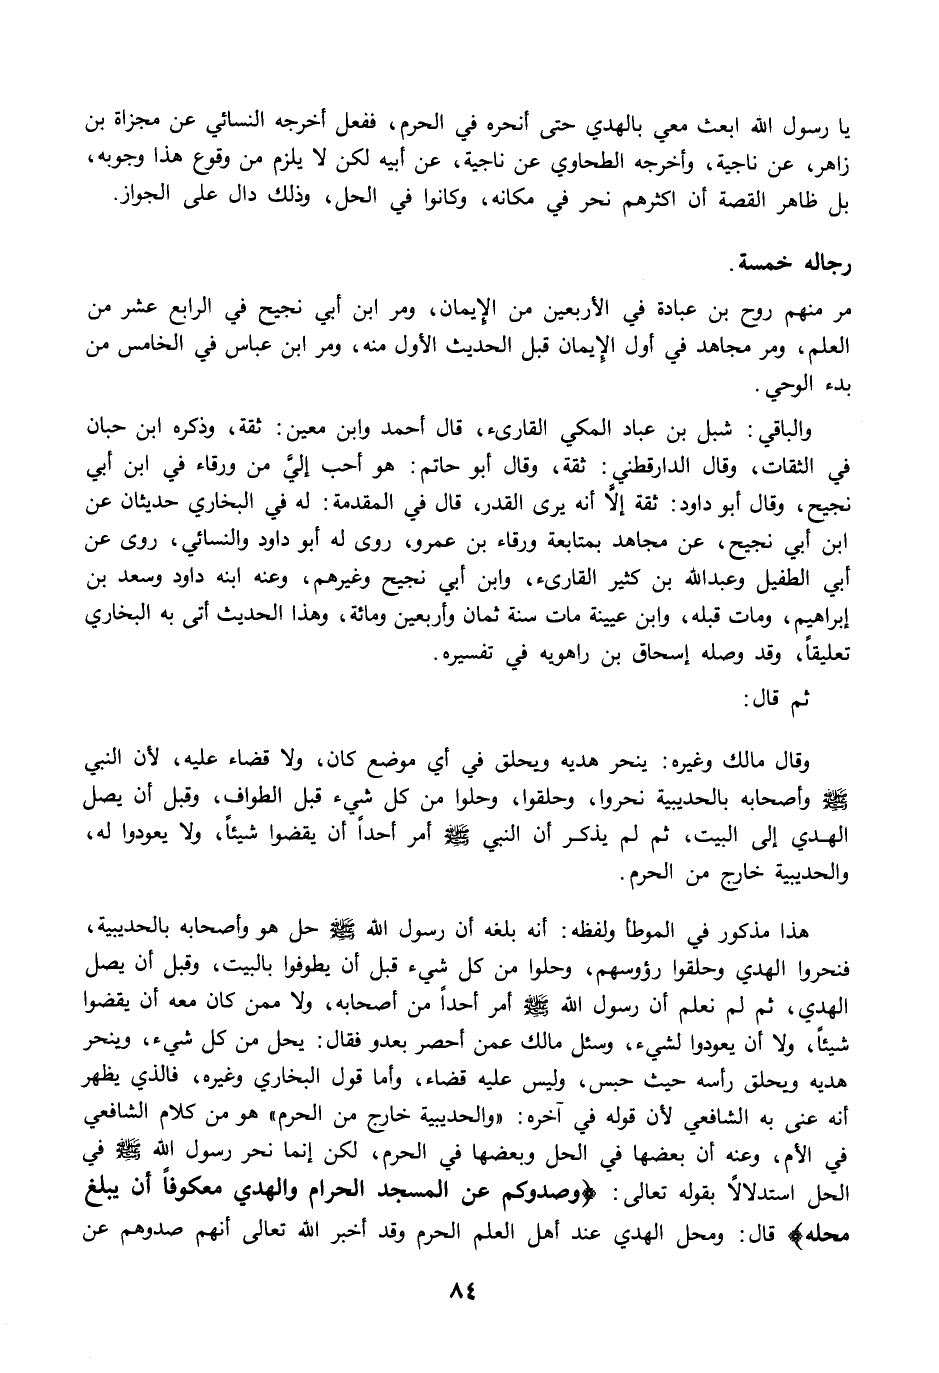 يا رسول الله ابعث معي بالهدي حتى أنحره في الحرم، ففعل أخرجه النسائي عن مجزاة بن
زاهر، عن ناجية، وأخرجه الطحاوي عن ناجية، عن أبيه لكن لا يلزم من وقوع هذا وجوبه،
بل ظاهر القصة أن اكثرهم نحر في مكانه، وكانوا في الحل، وذلك دال على الجواز.
رجاله خمسة.
مر منهم روح بن عبادة في الأربعين من الإيمان، ومر ابن أبي نجيح في الرابع عشر من
العلم، ومر مجاهد في أول الإيمان قبل الحديث الأول منه، ومر ابن عباس في الخامس من
بدء الوحي.
والباقي: شبل بن عباد المكي القارىء، قال أحمد وابن معين: ثقة، وذكره ابن حبان
في الثقات، وقال الدارقطني: ثقة، وقال أبو حاتم: هو أحب إليَّ من ورقاء في ابن أبي
نجيح، وقال أبو داود: ثقة إلَّا أنه يرى القدر، قال في المقدمة: له في البخاري حديثان عن
ابن أبي نجيح، عن مجاهد بمتابعة ورقاء بن عمرو، روى له أبو داود والنسائي، روى عن
أبي الطفيل وعبدالله بن كثير القارىء، وابن أبي نجيح وغيرهم، وعنه ابنه داود وسعد بن
إبراهيم، ومات قبله، وابن عيينة مات سنة ثمان وأربعين ومائة، وهذا الحديث أتى به البخاري
تعليقاً، وقد وصله إسحاق بن راهويه في تفسيره.
ثم قال:
وقال مالك وغيره: ينحر هديه ويحلق في أي موضع كان، ولا قضاء عليه، لأن النبي
ﷺ وأصحابه بالحديبية نحروا، وحلقوا، وحلوا من كل شيء قبل الطواف، وقبل أن يصل
الهدي إلى البيت، ثم لم يذكر أن النبي ﷺ أمر أحداً أن يقضوا شيئاً، ولا يعودوا له،
والحديبية خارج من الحرم.
هذا مذكور في الموطأ ولفظه: أنه بلغه أن رسول الله ﷺ حل هو وأصحابه بالحديبية،
فنحروا الهدي وحلقوا رؤوسهم، وحلوا من كل شيء قبل أن يطوفوا بالبيت، وقبل أن يصل
الهدي، ثم لم نعلم أن رسول الله ﷺ أمر أحداً من أصحابه، ولا ممن كان معه أن يقضوا
شيئاً، ولا أن يعودوا لشيء، وسئل مالك عمن أحصر بعدو فقال: يحل من كل شيء، وينحر
هديه ويحلق رأسه حيث حبس، وليس عليه قضاء، وأما قول البخاري وغيره، فالذي يظهر
أنه عنى به الشافعي لأن قوله في آخره: «والحديبية خارج من الحرم» هو من كلام الشافعي
في الأم، وعنه أن بعضها في الحل وبعضها في الحرم، لكن إنما نحر رسول الله ﷺ في
الحل استدلالاً بقوله تعالى: ﴿وصدوكم عن المسجد الحرام والهدي معكوفاً أن يبلغ
محله﴾ قال: ومحل الهدي عند أهل العلم الحرم وقد أخبر الله تعالى أنهم صدوهم عن
٨٤